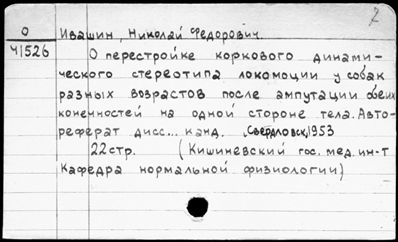 2
О
Ивашин, Николай Федорович.
41526
О перестройке коркового динами-
ческого стереотипа локомоции у собак
разных возрастов после ампутации обеих
конечностей на одной стороне тела. Авто-
реферат дисс... канд. Свердловск, 1953
22 стр. (Кишиневский гос. мед. ин-т
Кафедра нормальной физиологии)